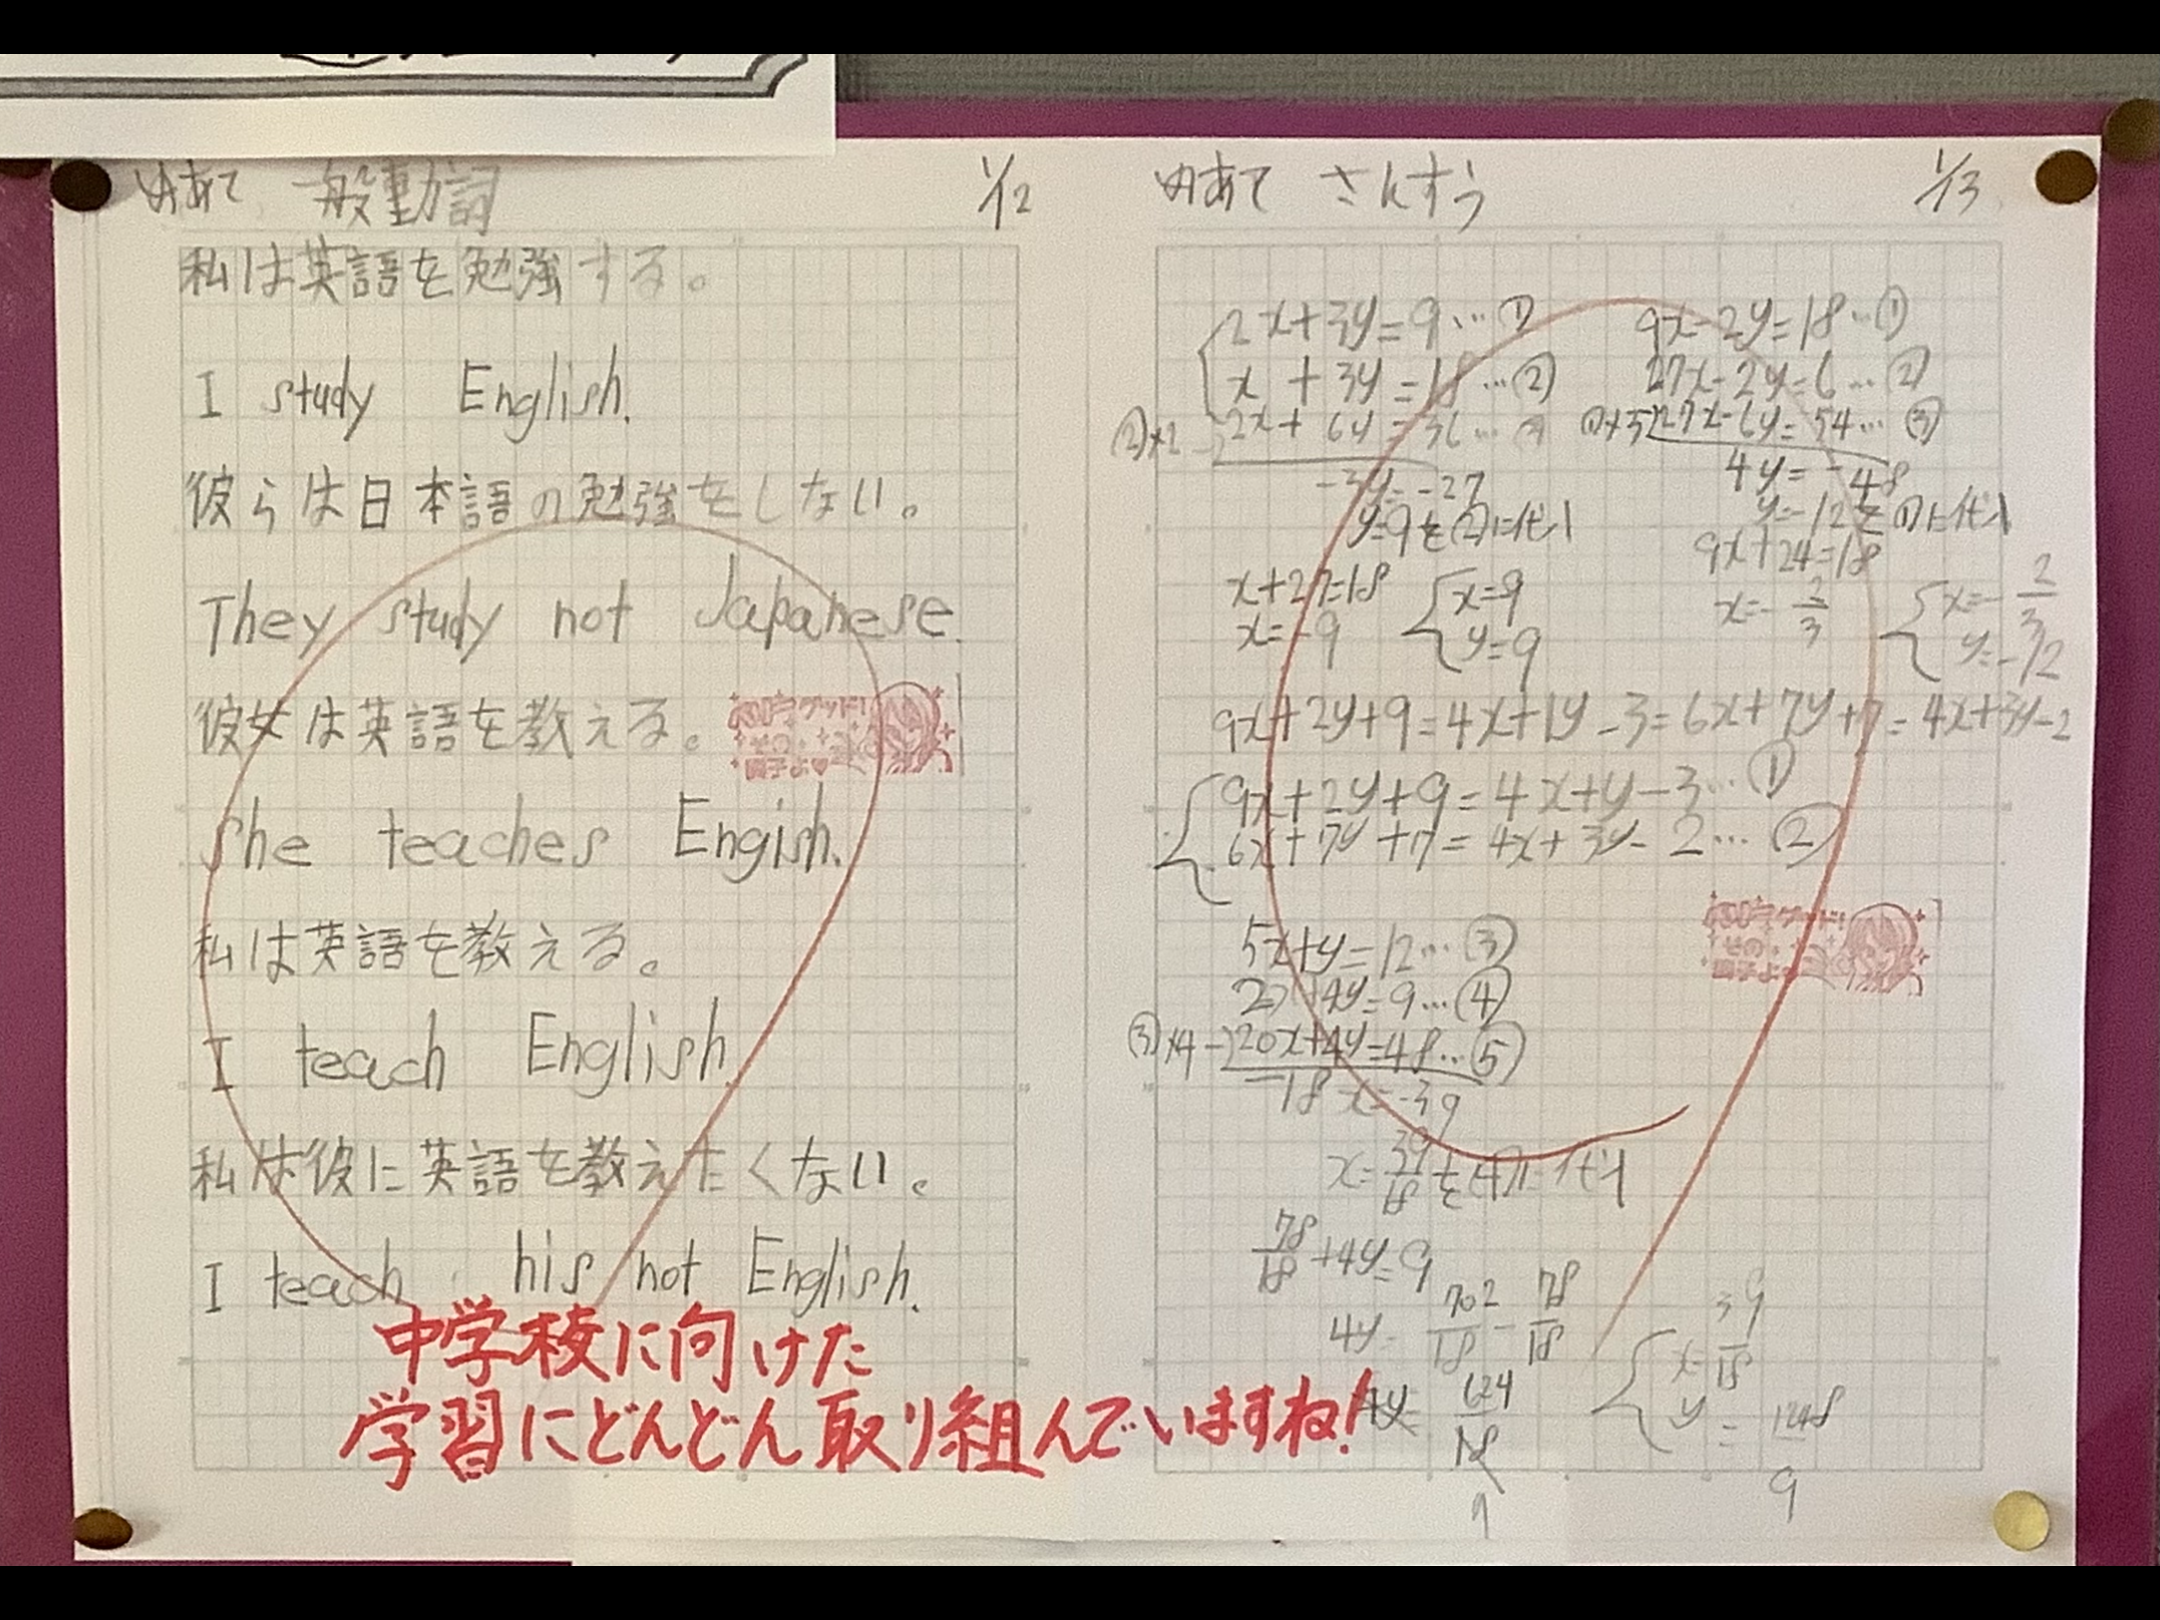 めあて 一般動詞 1/12
私は英語を勉強する。
I study English.
彼らは日本語の勉強をしない。
They study not Japanese.
彼女は英語を教える。
She teaches Engish.
私は英語を教える。
I teach English.
私は彼に英語を教えたくない。
I teach his not English.
中学校に向けた
学習にどんどん取り組んでいますね!
めあて さんすう 1/13
2x+3y=9…①
x+3y=18…②
②×2 -) 2x+6y=36…
-3y=-27
y=9を②に代入
x+27=18
x=-9
x=9
y=9
9x-2y=18…①
27x-2y=6…②
①×3 27x-6y=54…③
4y=-48
y=-12を①に代入
9x+24=18
x=-2/3
x=-2/3
y=-12
9x+2y+9=4x+1y-3=6x+7y+7=4x+3y-2
9x+2y+9=4x+y-3…①
6x+7y+7=4x+3y-2…②
5x+y=12…③
+4y=9…④
③×4 -) 20x+4y=48…⑤
-18x=-39
x=39/18を に代入
78/18+4y=9
4y=702/18-78/18
4y=624/18
9
x=39/18
y=1248/9
グッド!
その
調子よ♥
グッド!
その
調子よ